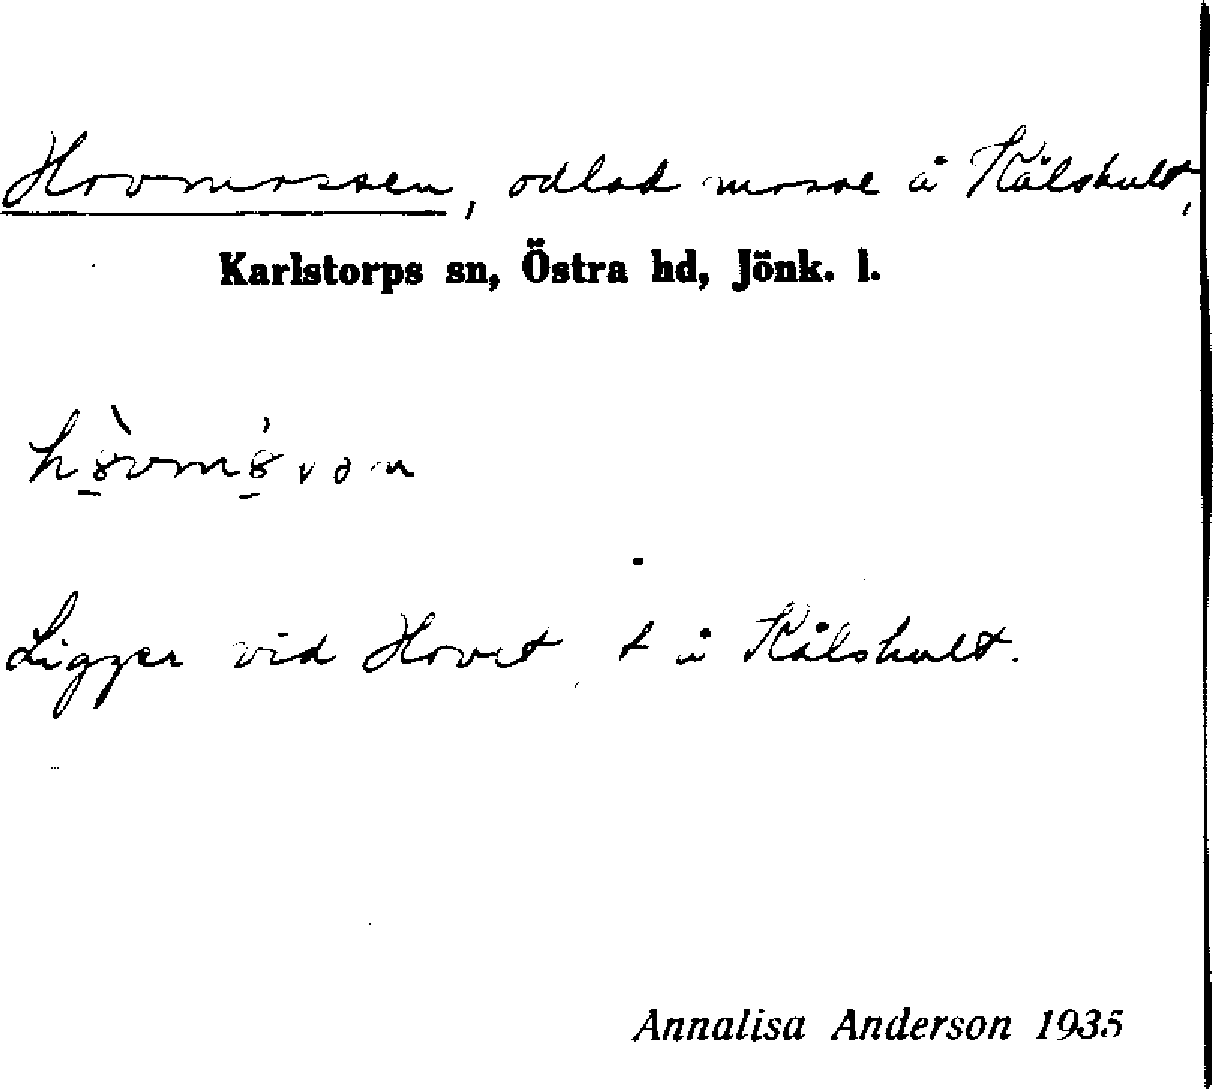 Hovmossen, odlad mosse å Kålshult,
Karlstorps sn, Östra hd, Jönk. l.
Ligger vid Hovet t å Kålshult.
Annalisa Anderson 1935